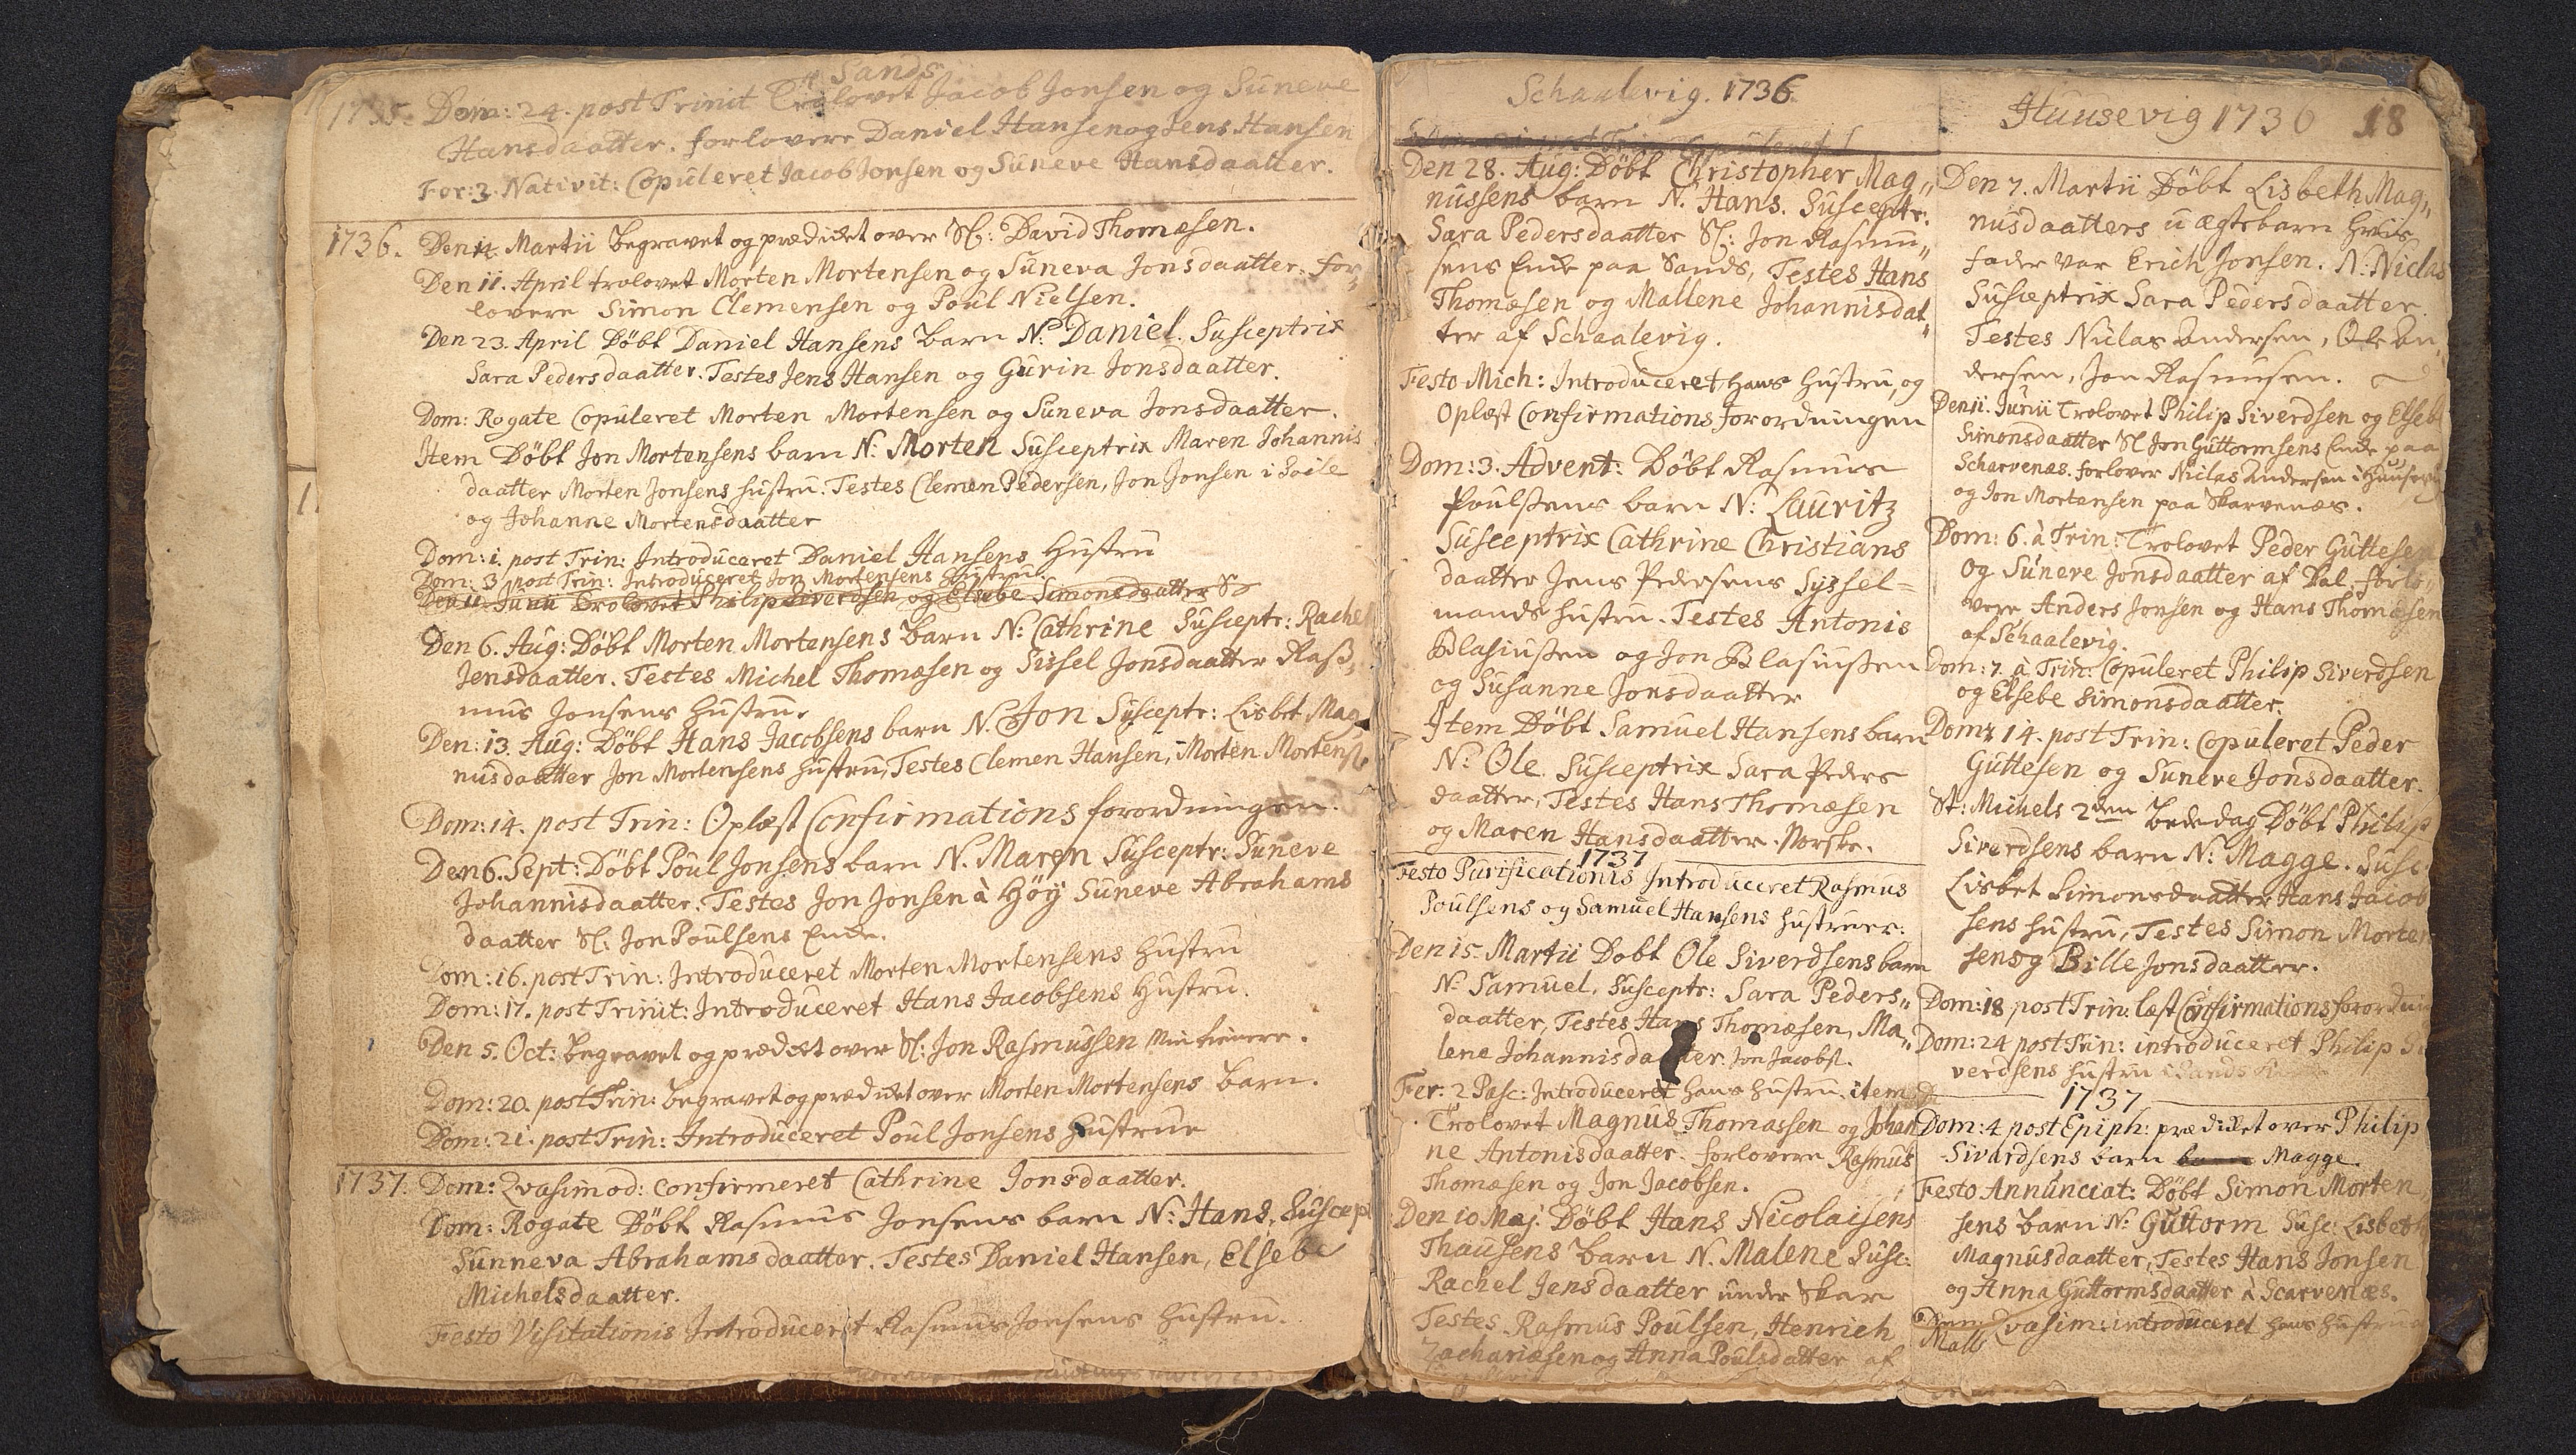 Sands
1735. Dom: 24. post Trinit Trolovet Jacob Jonsen og Suneve
Hansdaatter. forlovere Daniel Hansen og Jens Hansen
For: 3. Nativit: Copuleret Jacob Jonsen og Suneve Hansdaatter.
1736. Den 14 Martii begravet og prædicket over Sl: David Thomæsen.
Den 11. April trolovet Morten Mortensen og Suneva Jonsdaatter. for-
lovere Simon Clemensen og Poul Nielsen.
Den 23. April Döbt Daniel Hansens barn N: Daniel. Susceptrix
Sara Pedersdaatter. Testes Jens Hansen og Gurin Jonsdaatter.
Dom: Rogate Copuleret Morten Mortensen og Suneva Jonsdaatter.
Item Döbt Jon Mortensens barn N: Morten Susceptrix Maren Johannis
daatter Morten Jonsens hustru. Testes Clemen Pedersen, Jon Jonsen i
og Johanne Mortensdaatter
Dom: 1. post Trin: Introduceret Daniel Hansens Hustru
Dom: 3 post Trin: Introduceret Jon Mortensens Hustru.
Den 11 Junii Trolovet Philip Siverdsen og Elsebe Simonsdaatter
Den 6. Aug: Döbt Morten Mortensens barn N: Cathrine Susceptr: Rachel
Jensdaatter. Testes Michel Thomæsen og Sissel Jonsdaatter Raß-
mus Jonsens hustru.
Den: 13. Aug: Döbt Hans Jacobsens barn N. Jon Susceptr: Lisbet Mag-
nusdaatter Jon Mortensens hustru, Testes Clemen Hansen, Morten Mortens
Dom: 14. post Trin: Oplæst Confirmations forordningen.
Den 6. Sept: Döbt Poul Jonsens barn N. Maren Susceptr: Suneve
Johannisdaatter. Testes Jon Jonsen à Höy Suneve Abrahams
daatter Sl: Jon Poulsens Enke.
Dom: 16. post Trin: Introduceret Morten Mortensens Hustru
Dom: 17. post Trinit: Introduceret Hans Jacobsens Hustru.
Den 5. Oct: begravet og prædicket over Sl: Jon Rasmussen
Dom: 20. post Trin: begravet og prædicket over Morten Mortensens barn.
Dom: 21. post Trin: Introduceret Poul Jonsens Hustrue
1737. Dom: Qvasimod: Confirmeret Cathrine Jonsdaatter.
Dom: Rogate Döbt Rasmus Jonsens barn N: Hans. Suscep
Sunneva Abrahamsdaatter. Testes Daniel Hansen, Elsebe
Michelsdaatter.
Festo Visitationis Introduceret Rasmus Jonsens hustru.
Schaalevig. 1736.
Den 28. Aug: Döbt Christopher Mag-
nussens barn N. Hans. Susceptr:
Sara Pedersdaatter Sl: Jon Rasmu-
sens Enke paa Sands, Testes Hans
Thomæsen og Mallene Johannisdat-
ter af Schaalevig.
Festo Mich: Introduceret hans hustru, og
Oplæst Confirmations forordningen
Dom: 3. Advent: Döbt Rasmus
Poulsens barn N: Lauritz
Susceptrix Cathrine Christians
daatter Jens Pedersens Syssel=
mands hustru. Testes Antonis
Blasiussen og Jon Blasiussen
og Susanne Jonsdaatter
Item Döbt Samuel Hansens barn
N: Ole. Susceptrix Sara Peders
daatter, Testes Hans Thomæsen
og Maren Hansdaatter. Norske.
1737
Festo Purificationis Introduceret Rasmus
Poulsens og Samuel Hansens hustruer.
Den 15. Martii Dobt Ole Siverdsens barn
N: Samuel, Susceptr: Sara Peders-
daatter, Testes Hans Thomæsen, Ma-
lene Johannisdaatter. Jon Jacobs.
Fer: 2 Pasc: Introduceret hans hustru. item
Trolovet Magnus Thomassen og Johan
ne Antonisdaatter. forlovere Rasmus
Thomæsen og Jon Jacobsen.
Den 10 Maj. Döbt Hans Nicolaisens
Thausens barn N. Malene Susc:
Rachel Jensdaatter under Skar
Testes. Rasmus Poulsen, Henrich
Zachariasen og Anna Poulsdatter af
Huusevig 1736 18
Den 7. Martii Döbt Lisbeth Mag-
nusdaatters uægte barn hvis
fader var Erich Jonsen. N: Niclas
Susceptrix Sara Pedersdaatter.
Testes Niclas Andersen, Ole An-
dersen, Jon Rasmusen.
Den 11. Junii Trolovet Philip Siverdsen og Elsebe
Simonsdaatter Sl Jon Guttormsens Enke paa
Scharvenæs. forlover Niclas Andersen i Huusevig
og Jon Mortensen paa Skarvenæs.
Dom: 6. à Trin: Trolovet Peder Guttesen
og Suneve Jonsdaatter af Dal. forlo-
vere Anders Jonsen og Hans Thomæsen
af Schaalevig.
Dom: 7. à Trin: Copuleret Philip Siverdsen
og Elsebe Simonsdaatter.
Dom: 14. post Trin: Copuleret Peder
Guttesen og Suneve Jonsdaatter.
St: Michels 2den bededag Döbt Philip
Siverdsens barn N: Magge. Susc
Lisbet Simonsdaatter Hans Jacob
sens hustru, Testes Simon Morten
sen og Bille Jonsdaatter.
Dom: 18 post Trin: læst Confirmations forordnin
Dom: 24 post Trin: introduceret Philip Si
verdsens hustru
1737
Dom: 4 post Epiph: prædicket over Philip
Sivardsens barn Magge.
Festo Annunciat: Döbt Simon Morten
sens barn N: Guttorm Susc: Lisbeth
Magnusdaatter, Testes Hans Jonsen
og Anna Guttormsdaatter à Scarvenæs.
Dom: Qvasim: introduceret hans hustru